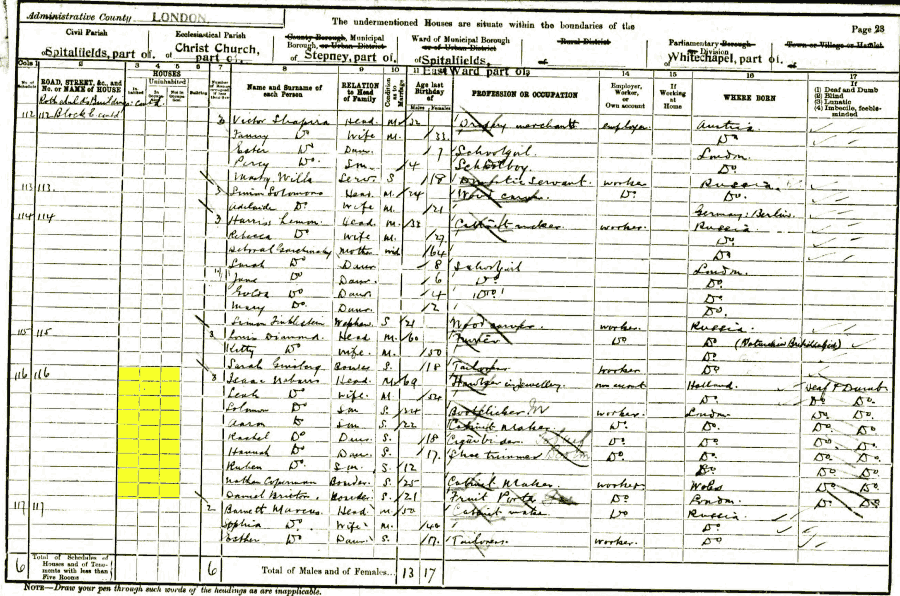 Administrative County LONDON
The undermentioned Houses are situate within the boundaries of the
Page 23
Civil Parish
Ecclesiastical Parish
County Borough, Municipal Borough, or Urban District
Ward of Municipal Borough or of Urban District
Rural District
Parliamentary Borough or Division
Town or Village or Hamlet
of Spitalfields, part of.
of Christ Church, part of.
of Stepney, part of.
of Spitalfields, East Ward part of.
of
of Whitechapel, part of.
of
Cols 1 2 3 4 5 6 7 8 9 10 11 12 13 14 15 16 17
ROAD, STREET, &c., and No. or NAME of HOUSE
HOUSES
Inhabited
Uninhabited
In Occupation
Not in Occupation
Building
Name and Surname of each Person
RELATION to Head of Family
Condition as to Marriage
Age last Birthday of
Males Females
PROFESSION OR OCCUPATION
Employer, Worker, or Own account
If Working at Home
WHERE BORN
(1) Deaf and Dumb
(2) Blind
(3) Lunatic
(4) Imbecile, feeble-minded
Rothschild Buildings Contd
112 112 Block C contd 3 Victor Shapira Head M 32 merchant employer Austria
Fanny Do Wife M 33 Do
Ester Do Daur 7 Schoolgirl London
Percy Do Son 4 Schoolboy Do
Mary Wills Serv S 18 Domestic Servant worker Russia
113 113 3 Simon Solomons Head M 24 Wood carver Do Do
Adelaide Do Wife M 21 Germany, Berlin
114 114 3 Harris Lemon Head M 33 Cabinet maker worker Russia
Rebecca Do Wife M 27 Do
Mother wid 64 Do
Sarah Do Daur 8 Schoolgirl London
Jane Do Daur 6 Do Do
Golda Do Daur 4 Do Do
Mary Do Daur 2 Do
Simon Finklestein Nephew S 21 Wood carver worker Russia
115 115 3 Louis Diamond Head M 60 Do Do
Kitty Do Wife M 50 Do
Sarah Ginsberg Boarder S 18 Tailoress worker Do
116 116 3 Isaac Head M 69 Hawker in Jewellery own account Holland Deaf & Dumb
Leah Do Wife M 54 Do Do Do
Solomon Do Son S 24 worker London Do Do
Aaron Do Son S 22 Cabinet Maker Do Do Do Do
Rachel Do Daur S 18 Do Do Do Do
Hannah Do Daur S 17 trimmer Do Do Do Do
Ruben Do Son S 12 Do Do Do
Nathan Coperman Boarder S 25 Cabinet Maker worker Do Do
Daniel Boarder S 21 Fruit Porter Do London Do Do
117 117 2 Barnett Marcus Head M 50 Cabinet maker Do Russia
Sophia Do Wife M 40 Do
Esther Do Daur S 17 Tailoress worker Do
6 Total of Schedules of Houses and of Tenements with less than Five Rooms 6 Total of Males and of Females... 13 17
NOTE—Draw your pen through such words of the headings as are inapplicable.